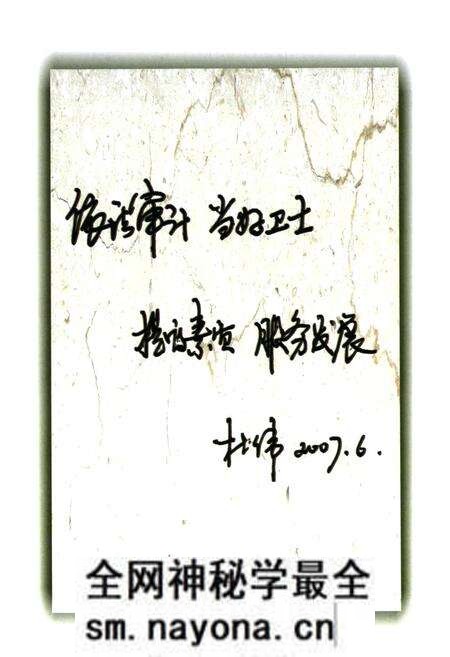 依法审计 当好卫士
提高素质 服务发展
杜伟 2007.6.
全网神秘学最全
sm.nayona.cn